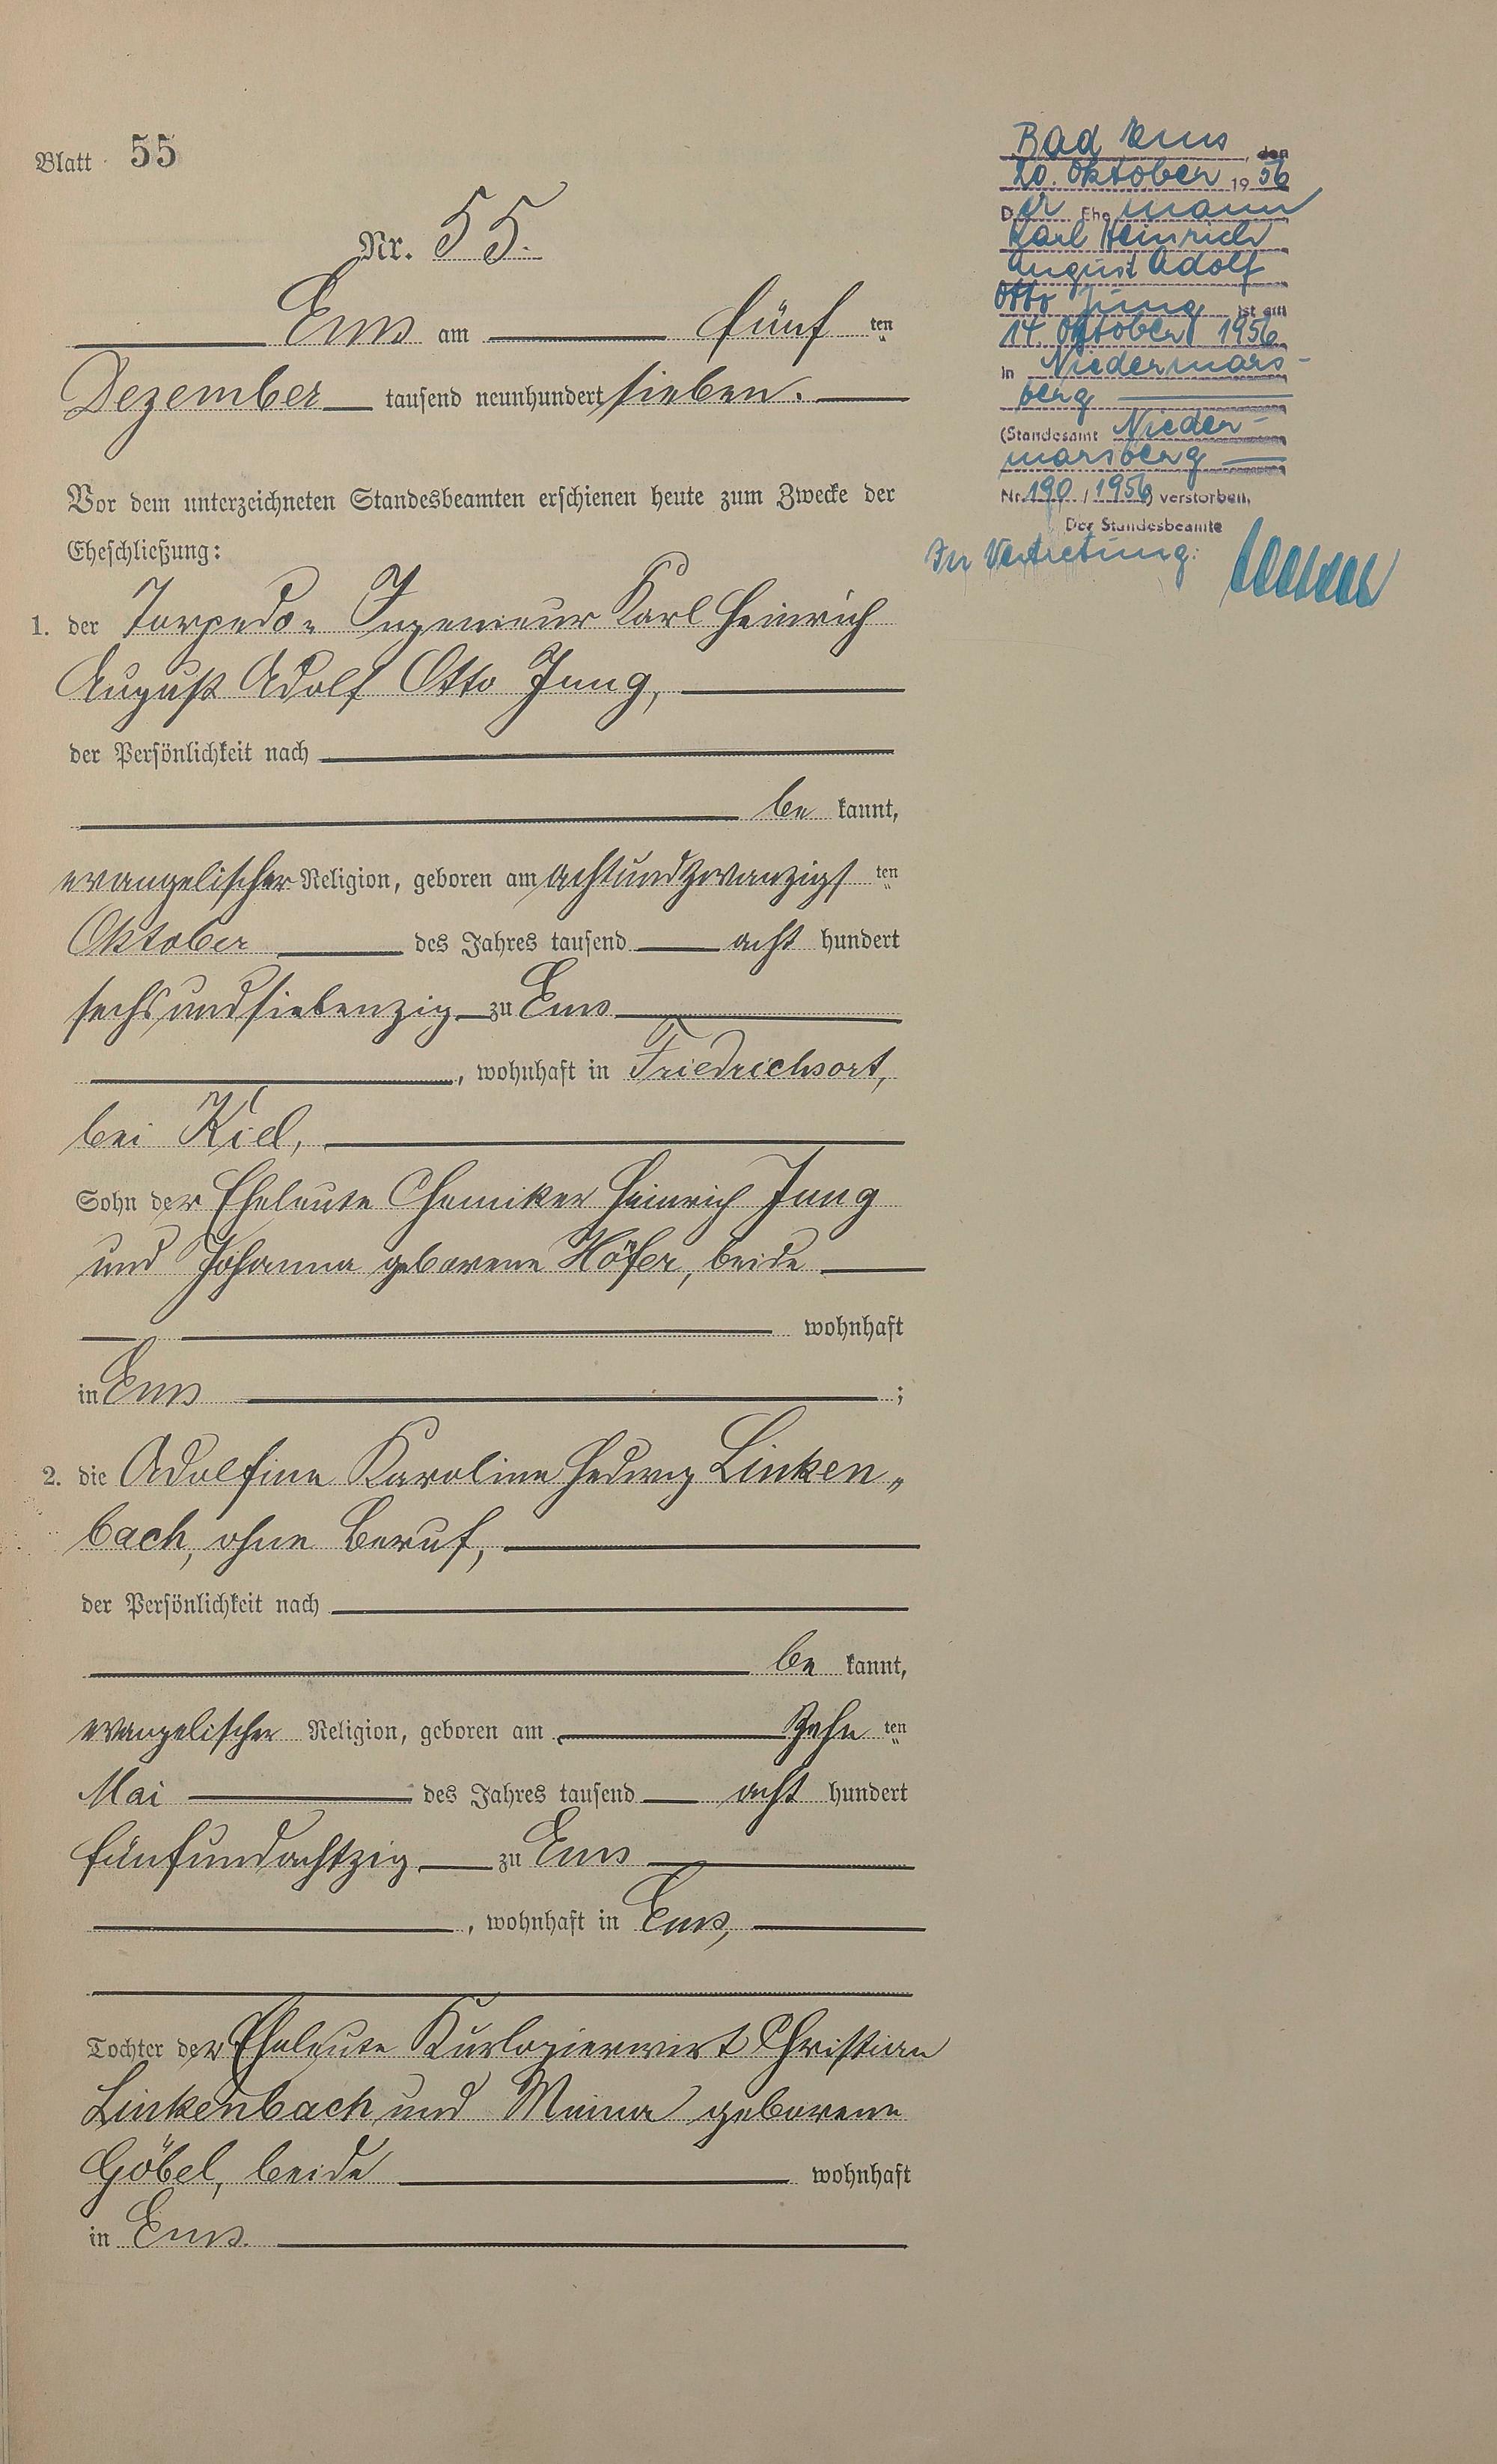 Blatt 55
Nr. 55.
Ems am fünf ten
Dezember tausend neunhundert sieben.
Vor dem unterzeichneten Standesbeamten erschienen heute zum Zwecke der
Eheschließung:
1. der Torpedo- Ingenieur Karl Heinrich
August Adolf Otto Jung,
der Persönlichkeit nach
be kannt,
evangelischer Religion, geboren am achtundzwanzigs ten
Oktober des Jahres tausend acht hundert
sechsundsiebenzig zu Ems
, wohnhaft in Friedrichsort,
bei Kiel,
Sohn der Eheleute Chemiker Heinrich Jung
und Johanna geborene Höfer, beide
wohnhaft
in Ems ;
2. die Adolfine Karoline Hedwig Linken„
bach, ohne Beruf,
der Persönlichkeit nach
be kannt,
evangelischer Religion, geboren am zehn ten
Mai des Jahres tausend acht hundert
fünfundachtzig zu Ems
, wohnhaft in Ems,
Tochter der Eheleute Kurlogierwirt Christian
Linkenbach und Minna geborene
Göbel, beide wohnhaft
in Ems.
Bad Ems, den
20. Oktober 1956
Der Ehemann
Karl Heinrich
August Adolf
Otto Jung ist am
14. Oktober 1956
in Niedermars-
berg
(Standesamt Nieder-
marsberg
Nr. 190 / 1956) verstorben,
Der Standesbeamte
In Vertretung: